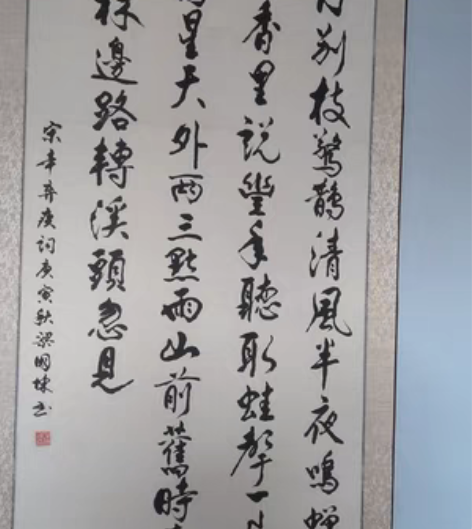 月别枝驚鵲清風半夜鳴蟬
香里說豐年聽取蛙聲一
星天外兩三點雨山前舊時
林邊路轉溪頭忽見
宋辛弃疾詞庚寅秋梁國棟书